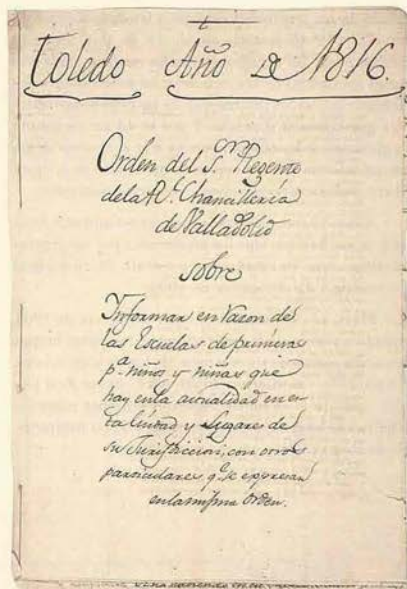 Toledo Año de 1816.
Orden del S.ᵒʳ Regente
dela R.ˡ Chancilleria
de Valladolid
sobre
Informar en razon de
las Escuelas de primeras
p.ᵃ niños y niñas que
hay enla actualidad en es
ta Ciudad y Lugares de
su Jurisdiccion, con otros
particulares q.ᵉ se expresan
enlamisma Orden.